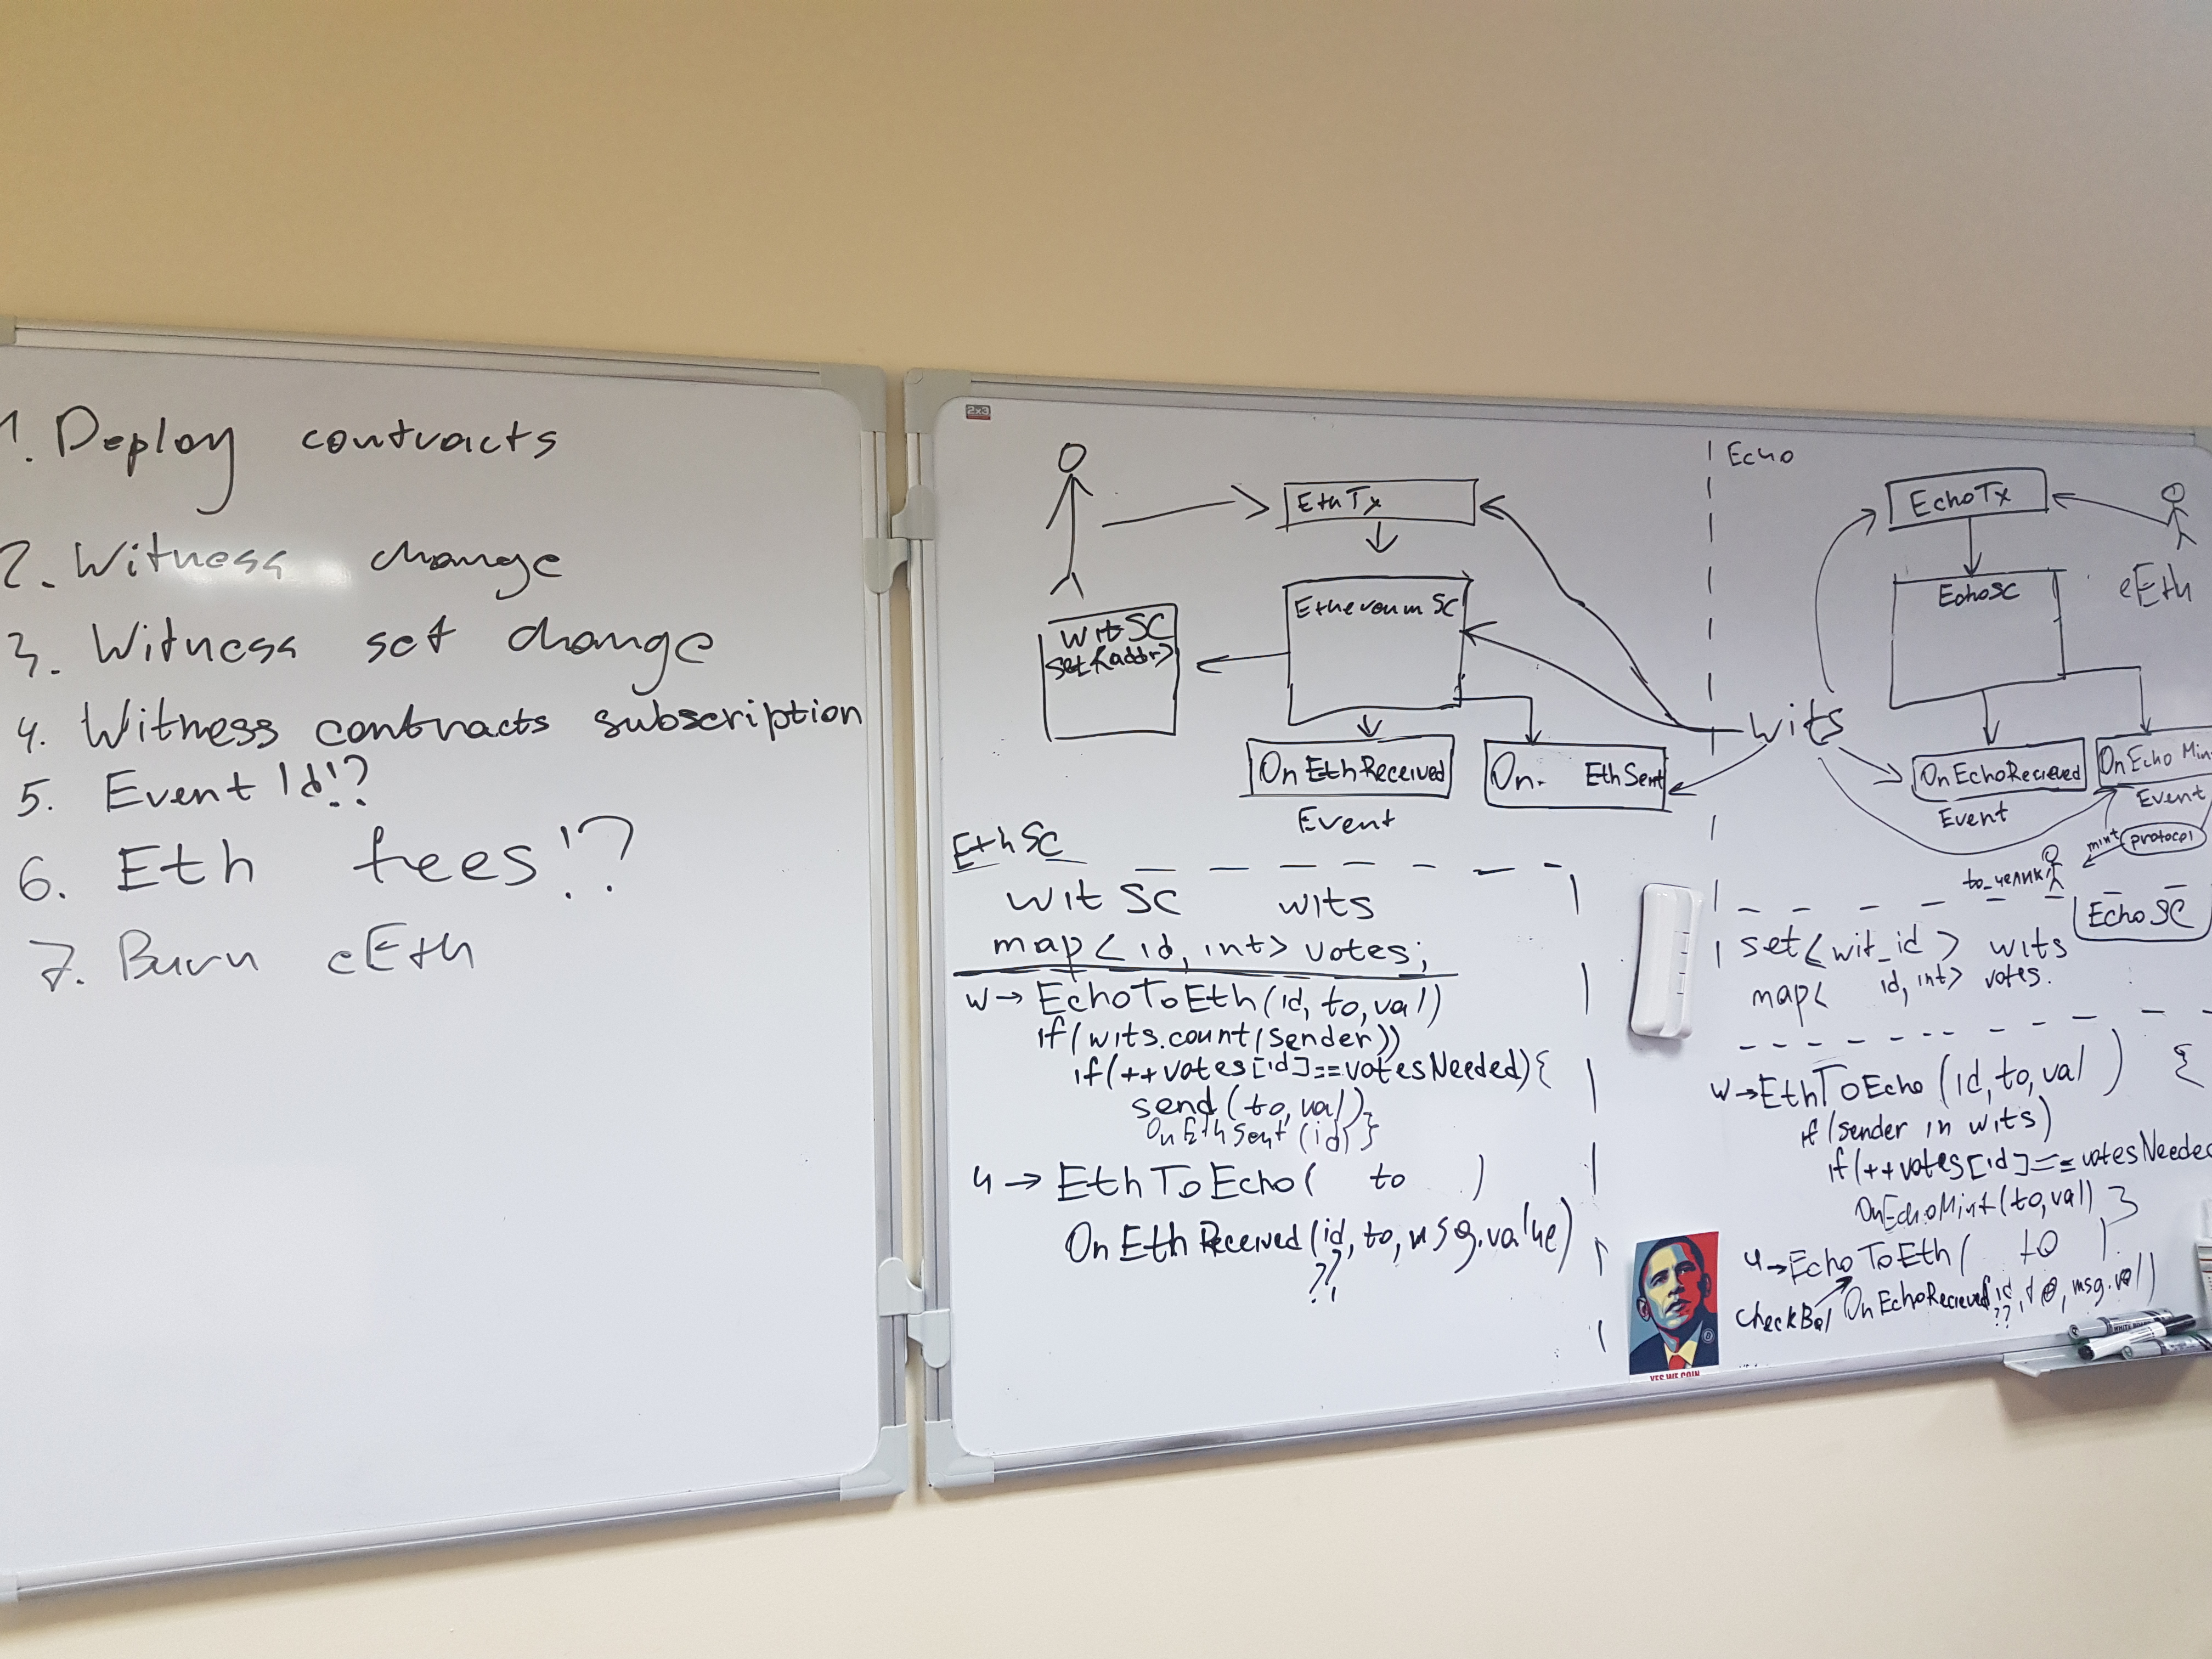 1. Deploy contracts
2. Witness change
3. Witness set change
4. Witness contracts subscription
5. Event Id!?
6. Eth fees!?
7. Burn eEth
2x3
Eth Tx
Ethereum SC
Wit SC
set<addr>
On Eth Received
Event
On. EthSent
Echo
EchoTx
EchoSC
eEth
wits
OnEchoRecieved
Event
On Echo Min
Event
mint
protocol
to_челик
Eth SC
wit SC wits
map< id, int> votes;
w→ EchoToEth(id, to, val)
if(wits.count(sender))
if(++votes[id]==votesNeeded){
send(to, val)
OnEthSent(id)}
u→ EthToEcho( to )
OnEthReceived(id, to, msg.value)
??
Echo SC
set<wit_id> wits
map< id, int> votes.
w→EthToEcho(id, to, val ) {
if(sender in wits)
if(++votes[id]==votesNeeded
OnEchoMint(to, val) }
u→EchoToEth( to )
checkBal OnEchoRecieved(id, to, msg.val)
??
YES WE COIN